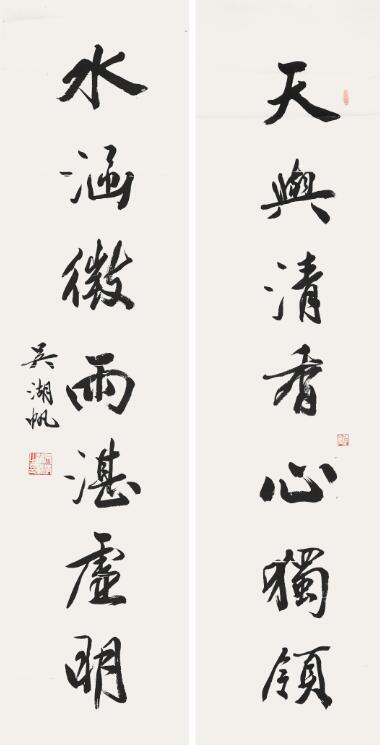 天與清香心獨領
水涵微雨湛虛明
吳湖帆